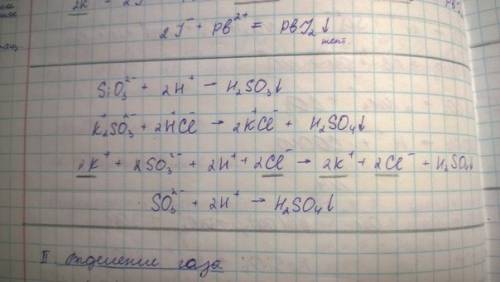 2I⁻ + Pb²⁺ = PbI₂↓
SiO₃²⁻ + 2H⁺ → H₂SO₃↓
K₂⁺SO₃²⁻ + 2H⁺Cl⁻ → 2K⁺Cl⁻ + H₂SO₄↓
2K⁺ + 2SO₃²⁻ + 2H⁺ + 2Cl⁻ → 2K⁺ + 2Cl⁻ + H₂SO₄
SO₃²⁻ + 2H⁺ → H₂SO₄↓
II Выделение газа